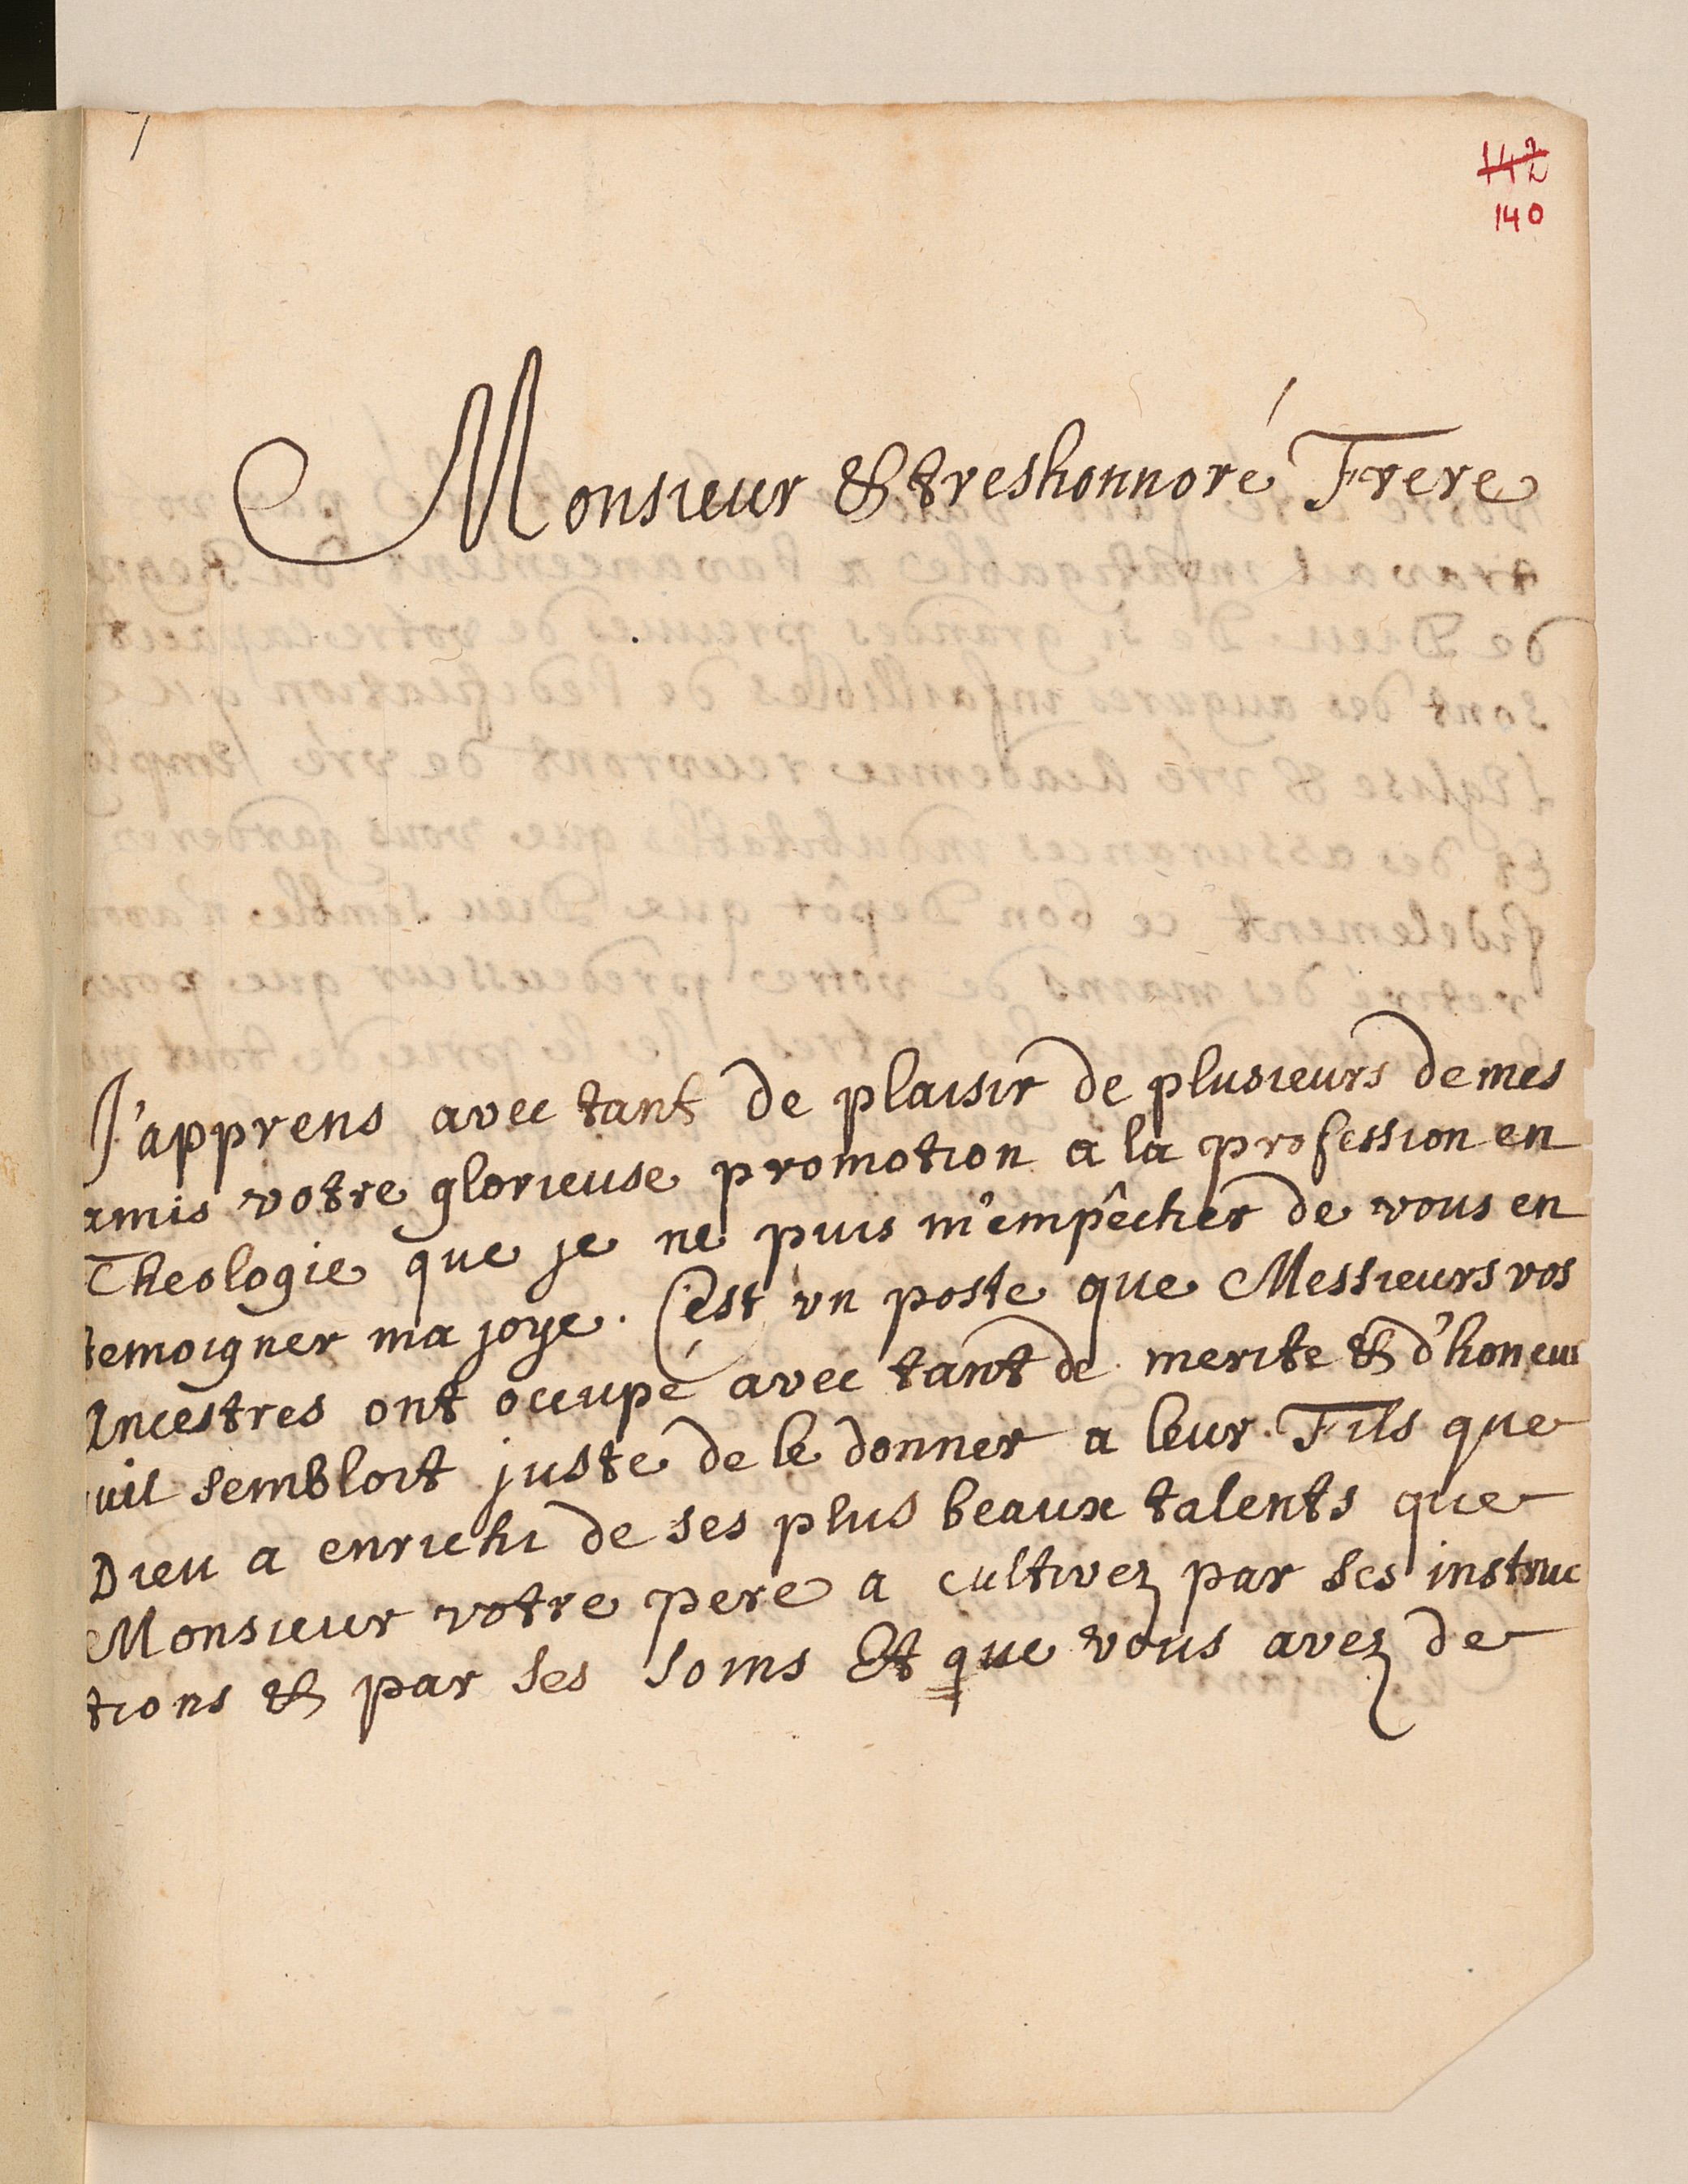 142
140
Monsieur & treshonnoré Frere
J'apprens avec tant de plaisir de plusieurs de mes
amis votre glorieuse promotion a la profession en
Theologie que je ne puis m'empêcher de vous en
temoigner ma joye. C'est un poste que Messieurs vos
Ancestres ont occupé avec tant de merite & d'honeur
uil sembloit juste de le donner a leur Fils que
Dieu a enrichi de ses plus beaux talents que
Monsieur votre pere a cultivez par ses instruc
tions & par ses soins Et que vous avez de